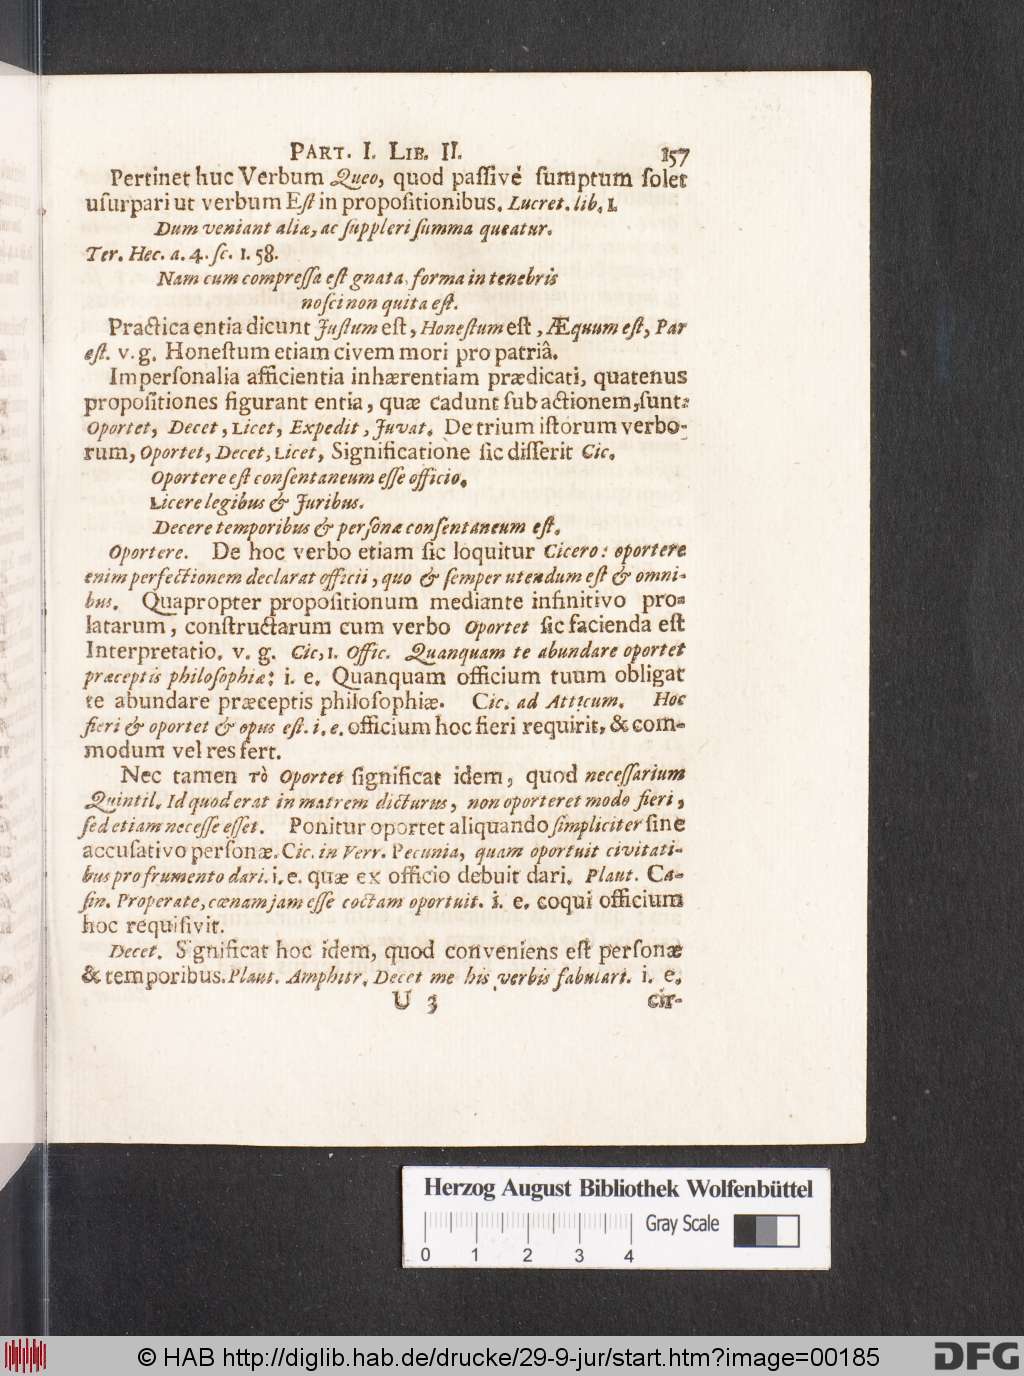 PART. I. LIB. II. 157
Pertinet huc Verbum Queo, quod passivè sumptum solet
usurpari ut verbum Est in propositionibus. Lucret. lib. I.
Dum veniant aliæ, ac suppleri summa queatur.
Ter. Hec. a. 4. sc. 1. 58.
Nam cum compressa est gnata, forma in tenebris
nosci non quita est.
Practica entia dicunt Justum est, Honestum est, Æquum est, Par
est. v. g. Honestum etiam civem mori pro patriâ.
Impersonalia afficientia inhærentiam prædicati, quatenus
propositiones figurant entia, quæ cadunt sub actionem, sunt:
Oportet, Decet, Licet, Expedit, Juvat. De trium istorum verbo-
rum, Oportet, Decet, Licet, Significatione sic disserit Cic.
Oportere est consentaneum esse officio.
Licere legibus & Juribus.
Decere temporibus & personæ consentaneum est.
Oportere. De hoc verbo etiam sic loquitur Cicero: oportere
enim perfectionem declarat officii, quo & semper utendum est & omni-
bus. Quapropter propositionum mediante infinitivo pro-
latarum, constructarum cum verbo Oportet sic facienda est
Interpretatio. v. g. Cic, 1. Offic. Quanquam te abundare oportet
præceptis philosophiæ: i. e. Quanquam officium tuum obligat
te abundare præceptis philosophiæ. Cic. ad Atticum. Hoc
fieri & oportet & opus est. i. e. officium hoc fieri requirit, & com-
modum vel res fert.
Nec tamen τὸ Oportet significat idem, quod necessarium
Quintil. Id quod erat in matrem dicturus, non oporteret modo fieri,
sed etiam necesse esset. Ponitur oportet aliquando simpliciter sine
accusativo personæ. Cic. in Verr. Pecunia, quam oportuit civitati-
bus pro frumento dari. i. e. quæ ex officio debuit dari. Plaut. Ca-
sin. Properate, cœnam jam esse coctam oportuit. i. e. coqui officium
hoc requisivit.
Decet. Significat hoc idem, quod conveniens est personæ
& temporibus. Plaut. Amphitr. Decet me his verbis fabulari. i. e.
U 3 cir-
Herzog August Bibliothek Wolfenbüttel
Gray Scale
0 1 2 3 4
© HAB http://diglib.hab.de/drucke/29-9-jur/start.htm?image=00185
DFG